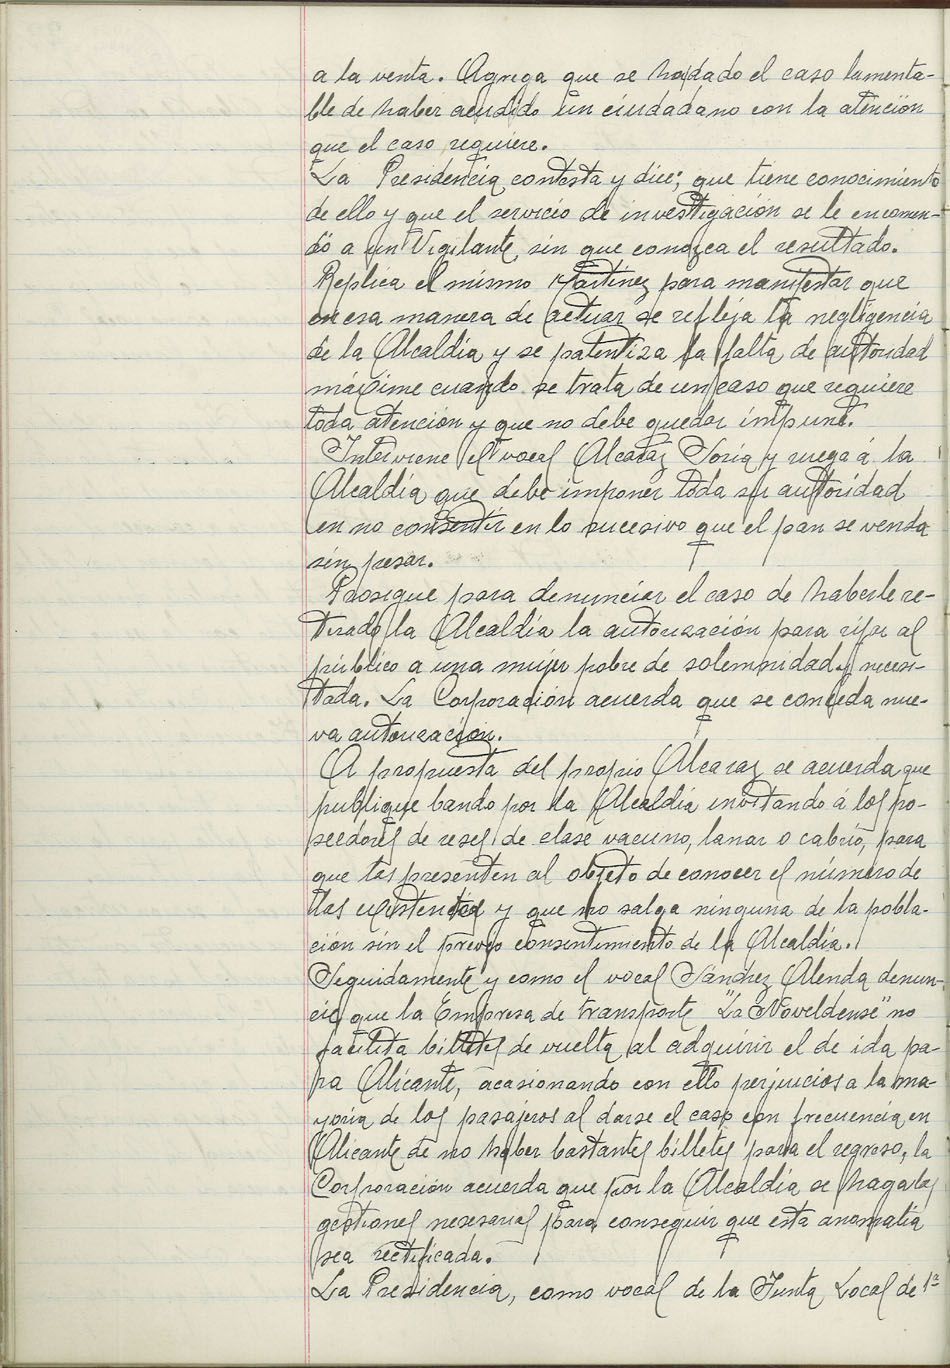 a la venta. Agrega que se ha dado el caso lamenta-
ble de haber acudido un ciudadano con la atención
que el caso requiere.
La Presidencia contesta y dice; que tiene conocimiento
de ello y que el servicio de investigación se le encomen-
dó a un Vigilante, sin que conozca el resultado.
Replica el mismo Martinez para manifestar que
en esa manera de actuar se refleja la negligencia
de la Alcaldía y se patentiza la falta de autoridad
máxime cuando se trata de un caso que requiere
toda atención y que no debe quedar impune.
Interviene el vocal Alcaraz Soria y ruega á la
Alcaldía que debe imponer toda su autoridad
en no consentir en lo sucesivo que el pan se venda
sin pesar.
Prosigue para denunciar el caso de haberle re-
tirado la Alcaldía la autorización para rifar al
público a una mujer pobre de solemnidad y necesi-
tada. La Corporación acuerda que se conceda nue-
va autorización.
A propuesta del propio Alcaraz se acuerda que
publique bando por la Alcaldía invitando á los po-
seedores de reses de clase vacuno, lanar o cabrío, para
que las presenten al objeto de conocer el número de
las existencias y que no salga ninguna de la pobla-
ción sin el previo consentimiento de la Alcaldía.
Seguidamente y como el vocal Sánchez Alenda denun-
cia que la Empresa de transporte "La Noveldense" no
facilita billetes de vuelta al adquirir el de ida pa-
ra Alicante, acasionando con ello perjuicios a la ma-
yoria de los pasajeros al darse el caso con frecuencia en
Alicante de no haber bastantes billetes para el regreso, la
Corporación acuerda que por la Alcaldía se haga las
gestiones nesesarias para conseguir que esta anomalia
sea rectificada.
La Presidencia, como vocal de la Junta Local de 1ª